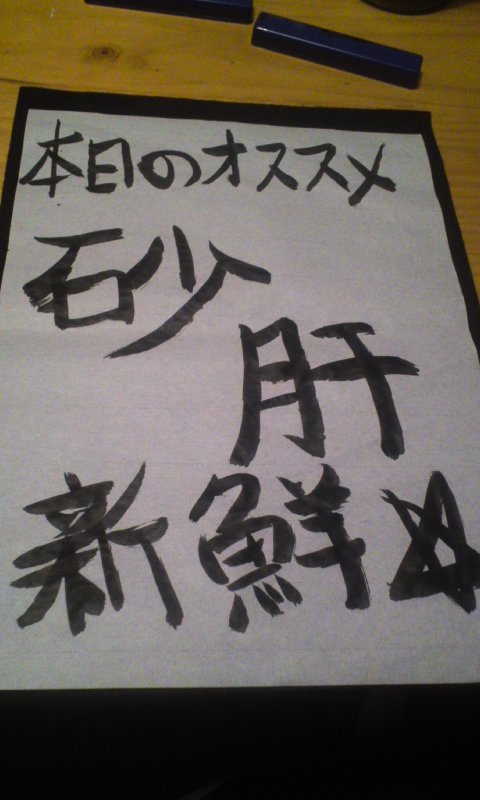 本日のオススメ
砂
肝
新鮮☆